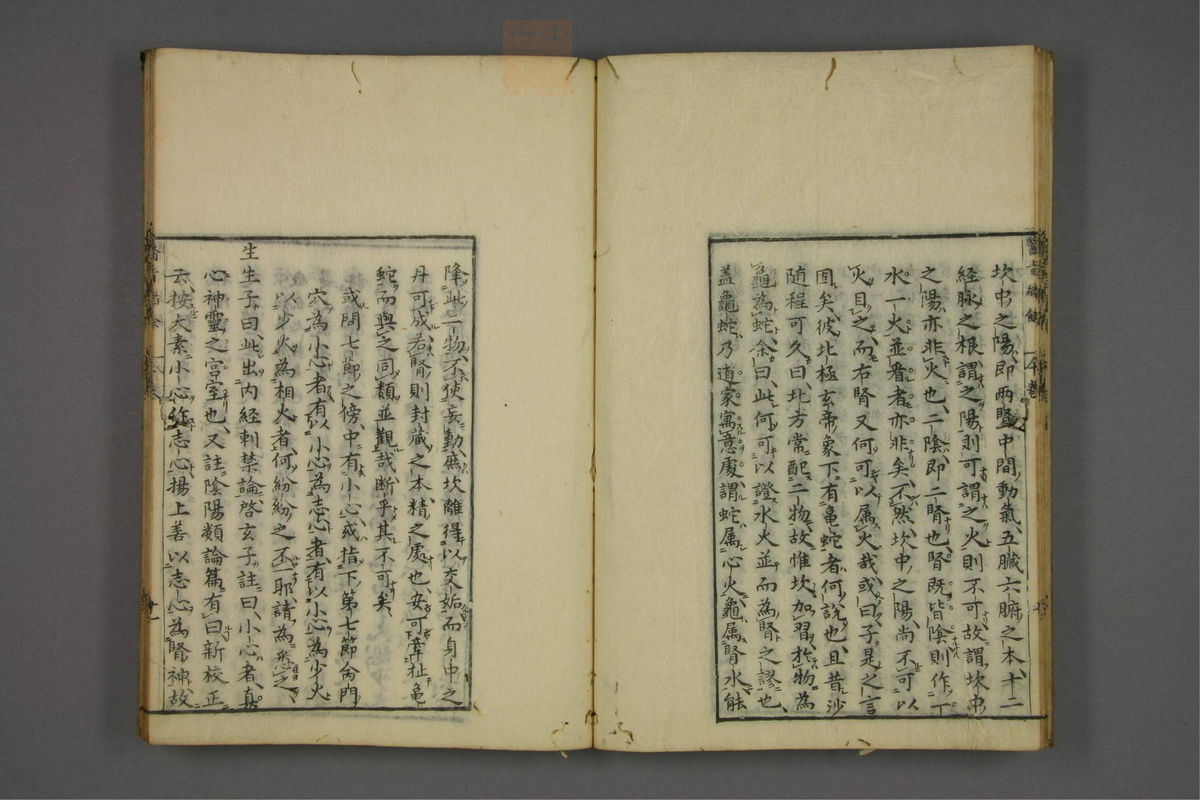 坎中之陽即兩腎中間動氣五臟六腑之本十二
經脉之根謂之陽則可謂之火則不可故謂坎中
之陽亦非火也二陰即二腎也腎既皆陰則作一
水一火並看者亦非矣不然坎中之陽尚不可以
火目之而右腎又何可以属火哉或曰子是之言
固矣彼北極玄帝象下有亀蛇者何說也且昔沙
随程可久曰北方常配二物故惟坎加習於物為
龜為蛇余曰此何可以證水火並而為腎之謬也
盖龜蛇乃道家寓意處謂蛇属心火龜属腎水能
降此二物不使妄動庶坎離得以交姤而身中之
丹可成若腎則封藏之本精之處也安可牽扯亀
蛇而與之同類並觀哉断乎其不可矣
或問七節之傍中有小心或指下第七節命門
穴為小心者有以小心為志心者有以小心為少火
以少火為相火者何紛紛之不一耶請為悉之
生生子曰此出内經刺禁論啓玄子註曰小心者真
心神靈之宮室也又註陰陽類論篇有曰新校正
云按太素小心作志心揚上善以志心為腎神故